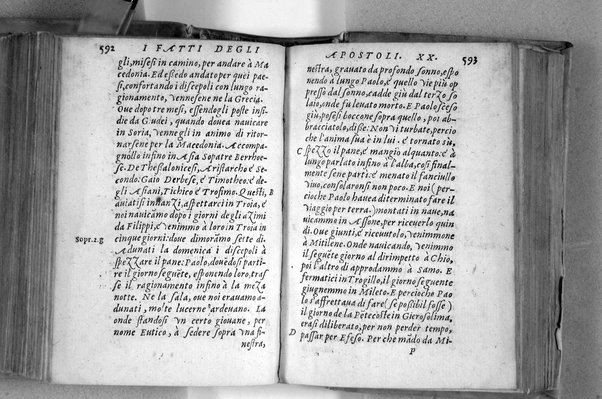 592 I FATTI DEGLI
gli, misesi in camino, per andare à Ma
cedonia. Ed eßẽdo andato per quei pae-
si, confortando i discepoli con lungo ra-
gionamento, vennesene ne la Grecia.
Oue dopo tre mesi, essendogli poste insi-
die da Giudei, quando douea nauicare
in Soria, vennegli in animo di ritor-
narsene per la Macedonia. Accompa-
gnollo infino in Asia Sopatre Berrhoe-
se. De Thessalonicesi, Aristarcho e Se-
condo: Gaio Derbese, e Timotheo: de-
gli Asiani, Tichico e Trofimo. Questi, B
auiatisi innanzi, aspettarci in Troia, e
noi nauicamo dopo i giorni degli azimi
da Filippi, e venimmo à loro in Troia in
Sopr. 2. g cinque giorni: doue dimorãmo sette dì
Adunati la domenica i discepoli à
spezzare il pane: Paolo, douẽdosi parti-
re il giorno seguẽte, esponendo loro, tras
se il ragionamento infino à la meza
notte. Ne la sala, oue noi erauamo a-
dunati, molte lucerne ardeuano. La
onde standosi vn certo giouane, per
nome Eutico, à sedere sopra vna fi-
nestra,
APOSTOLI. XX. 593
nestra, grauato da profondo sonno, espo
nendo à lungo Paolo, e quello vie più op
presso dal sonno, cadde giù dal terzo so
laio, onde fu leuato morto. E Paolo sceso
giù, posesi boccone sopra quello, poi ab-
bracciatolo, disse: Non vi turbate, percio
che l'anima sua è in lui. e tornato sù,
C spezzò il pane, e mangiò alquanto: e à
lungo parlato infino à l'alba, così final-
mente sene partì: e menato il fanciullo
viuo, consolaronsi non poco. E noi (per-
cioche Paolo hauea diterminato fare il
viaggio per terra) montati in naue, na
uicammo in Assone, per riceuerlo quin
di. Oue giunti, e riceuutolo, venimmone
à Mitilene. Onde nauicando, venimmo
il seguẽte giorno al dirimpetto à Chio,
poi l'altro dì approdammo à Samo. E
fermatici in Trogillo, il giorno seguente
giugnemmo in Mileto. E percioche Pao
lo s'affrettaua di fare (se possibil fosse)
il giorno de la Pẽtecoste in Gierosolima,
erasi diliberato, per non perder tempo,
D passar per Efeso. Per che mãdò da Mi-
P